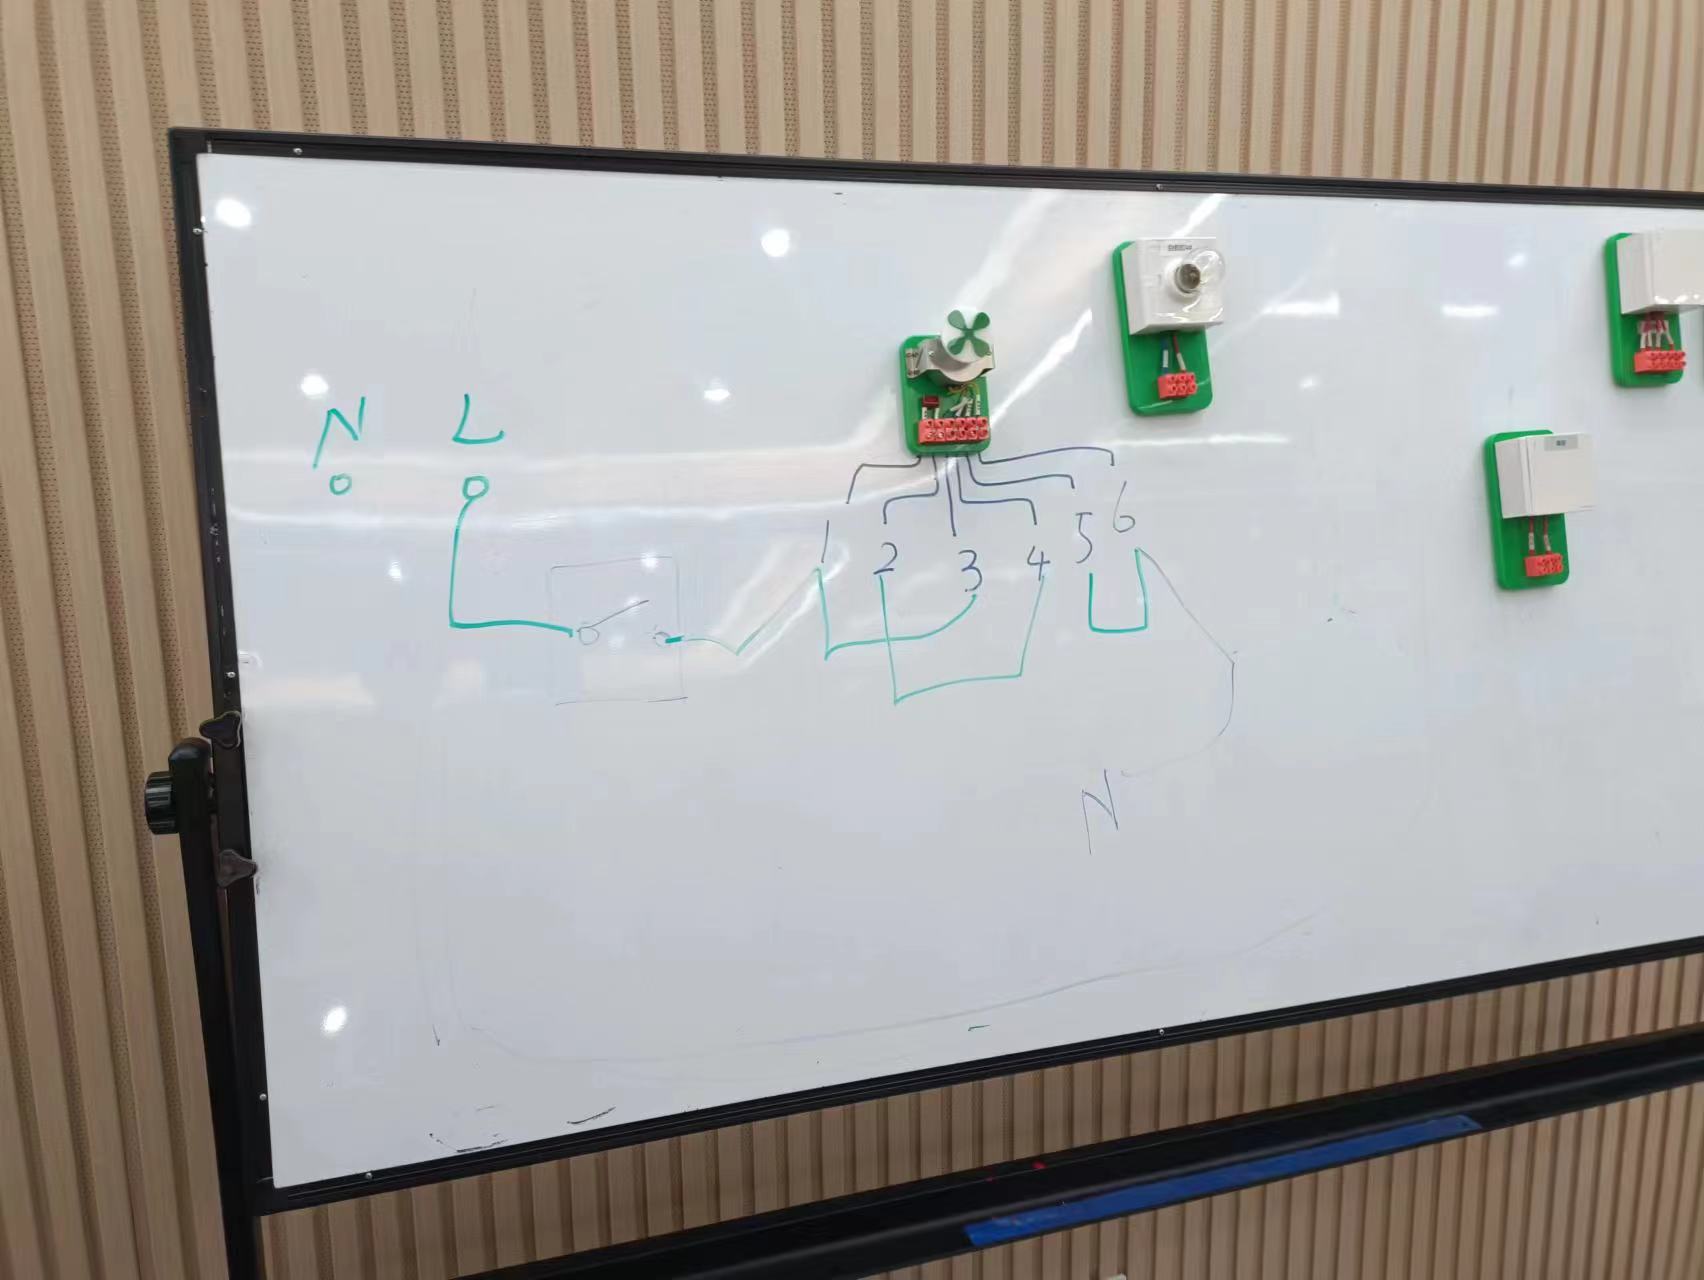 N L
1 2 3 4 5 6
N